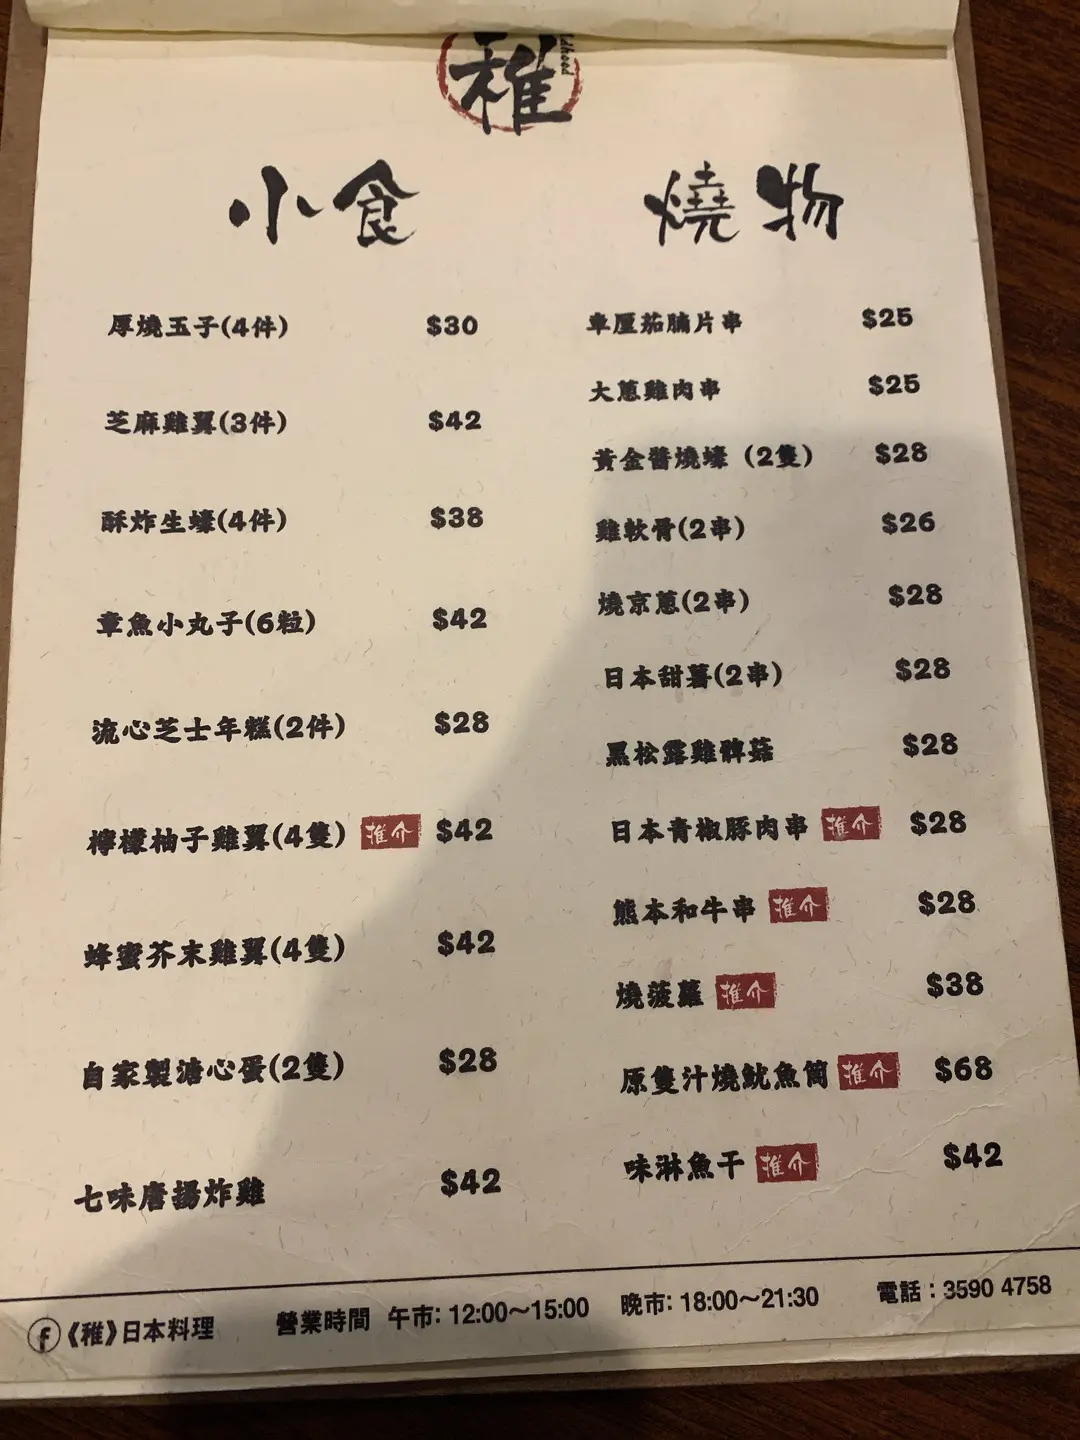 稚
小食
厚燒玉子(4件) $30
芝麻雞翼(3件) $42
酥炸生蠔(4件) $38
章魚小丸子(6粒) $42
流心芝士年糕(2件) $28
檸檬柚子雞翼(4隻) 推介 $42
蜂蜜芥末雞翼(4隻) $42
自家製溏心蛋(2隻) $28
七味唐揚炸雞 $42
燒物
車厘茄腩片串 $25
大蔥雞肉串 $25
黃金醬燒蠔 (2隻) $28
雞軟骨(2串) $26
燒京蔥(2串) $28
日本甜薯(2串) $28
黑松露雞髀菇 $28
日本青椒豚肉串 推介 $28
熊本和牛串 推介 $28
燒菠蘿 推介 $38
原隻汁燒魷魚筒 推介 $68
味淋魚干 推介 $42
f 《稚》日本料理 營業時間 午市: 12:00~15:00 晚市: 18:00~21:30 電話 : 3590 4758